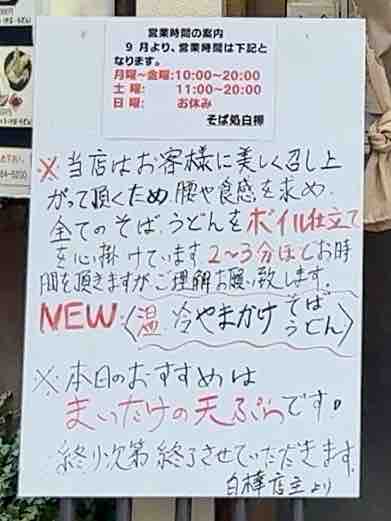 営業時間の案内
9月より、営業時間は下記と
なります。
月曜～金曜:10:00～20:00
土 曜: 11:00～20:00
日 曜: お休み
そば処白樺
※当店はお客様に美しく召し上
がって頂くため、腰や食感を求め、
全てのそば、うどんをボイル仕立て
を心掛けています。2～3分ほどお時
間を頂きますが、ご理解お願い致します。
NEW:〈温、冷やまかけそば
うどん〉
※本日のおすすめは
まいたけの天ぷらです。
終り次第終了させていただきます。
白樺店主より